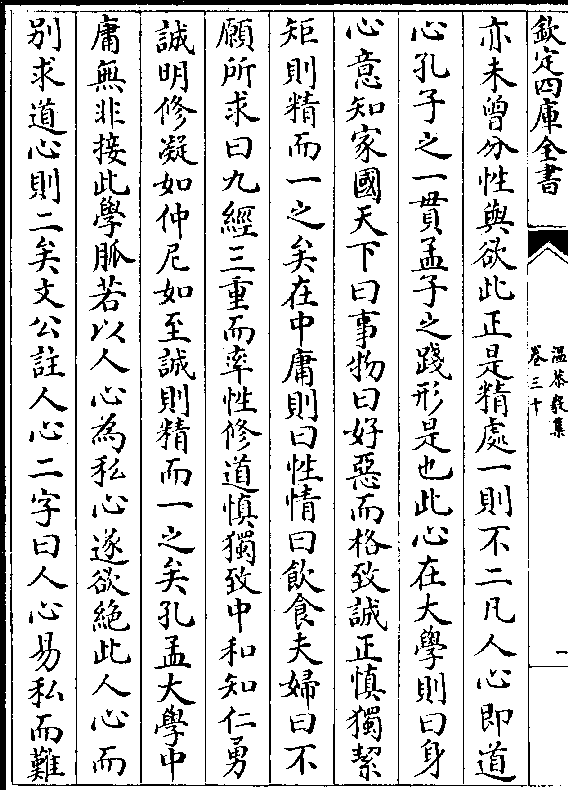 欽定四庫全書
溫恭毅集
卷三十
一
亦未曾分性與欲此正是精處一則不二凡人心即道
心孔子之一貫孟子之踐形是也此心在大學則曰身
心意知家國天下曰事物曰好惡而格致誠正慎獨絜
矩則精而一之矣在中庸則曰性情曰飲食夫婦曰不
願所求曰九經三重而率性修道慎獨致中和知仁勇
誠明修凝如仲尼如至誠則精而一之矣孔孟大學中
庸無非接此學脈若以人心為私心遂欲絶此人心而
别求道心則二矣文公註人心二字曰人心易私而難